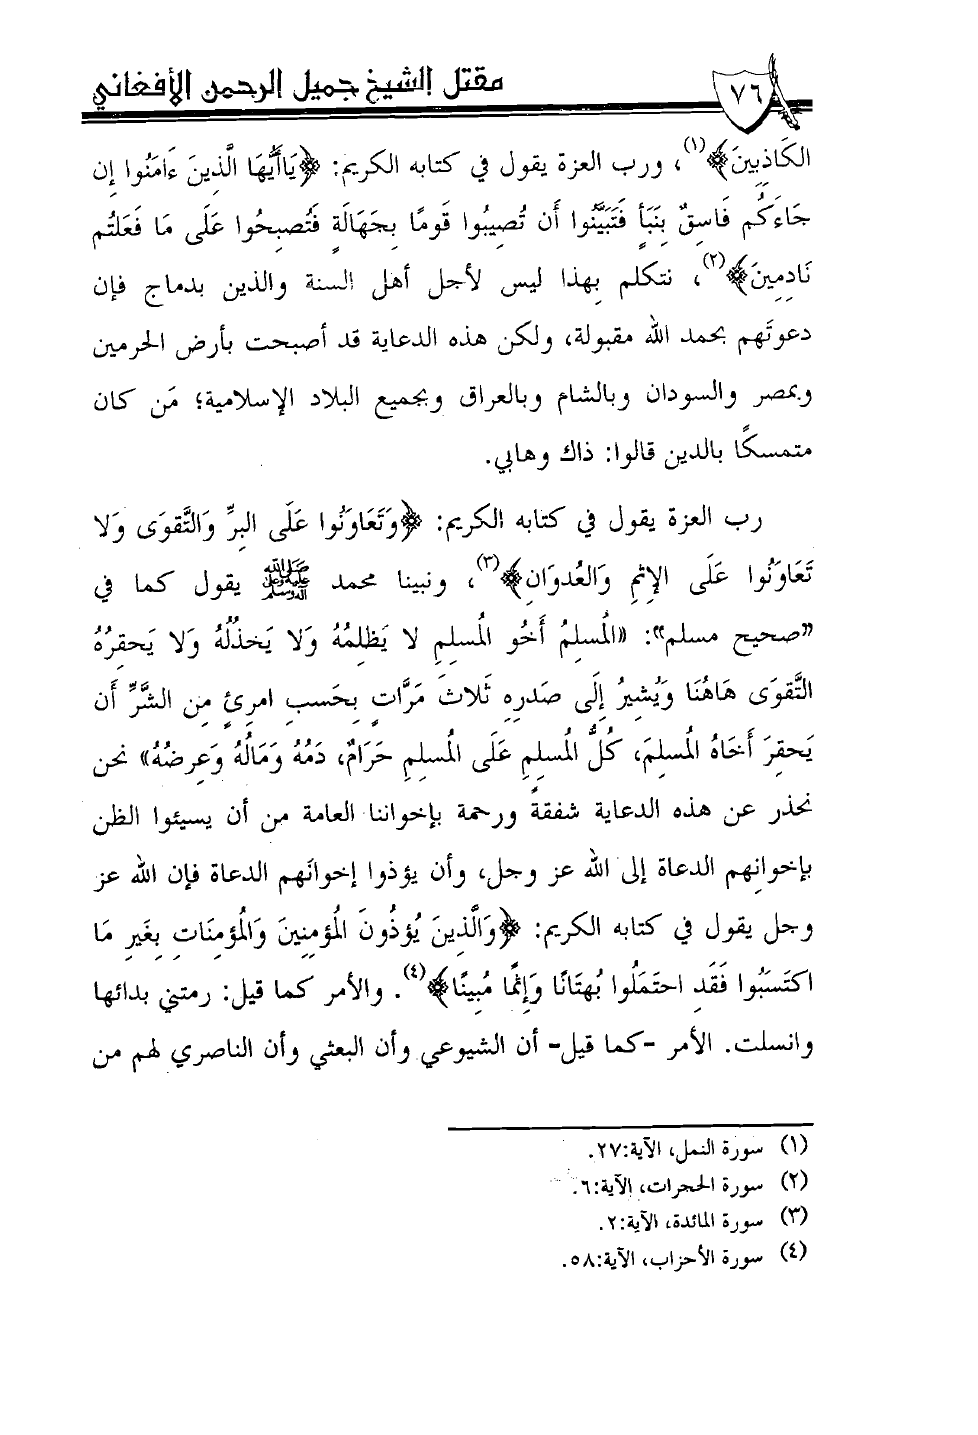 ٧٦
مقتل الشيخ جميل الرحمن الأفغاني
الكَاذِبِينَ﴾(١)، ورب العزة يقول في كتابه الكريم: ﴿يَاأَيُّهَا الَّذِينَ ءَامَنُوا إِن
جَاءَكُم فَاسِقٌ بِنَبَأٍ فَتَبَيَّنُوا أَن تُصِيبُوا قَومًا بِجَهَالَةٍ فَتُصبِحُوا عَلَى مَا فَعَلتُم
نَادِمِينَ﴾(٢)، نتكلم بِهذا ليس لأجل أهل السنة والذين بدماج فإن
دعوتَهم بحمد الله مقبولة، ولكن هذه الدعاية قد أصبحت بأرض الحرمين
وبمصر والسودان وبالشام وبالعراق وبجميع البلاد الإسلامية؛ مَن كان
متمسكًا بالدين قالوا: ذاك وهابي.
رب العزة يقول في كتابه الكريم: ﴿وَتَعَاوَنُوا عَلَى البِرِّ وَالتَّقوَى وَلا
تَعَاوَنُوا عَلَى الإِثمِ وَالعُدوَانِ﴾(٣)، ونبينا محمد ﷺ يقول كما في
”صحيح مسلم“: «المُسلِمُ أَخُو المُسلِمِ لا يَظلِمُهُ وَلا يَخذُلُهُ وَلا يَحقِرُهُ
التَّقوَى هَاهُنَا وَيُشِيرُ إِلَى صَدرِهِ ثَلاثَ مَرَّاتٍ بِحَسبِ امرِئٍ مِن الشَّرِّ أَن
يَحقِرَ أَخَاهُ المُسلِمَ، كُلُّ المُسلِمِ عَلَى المُسلِمِ حَرَامٌ، دَمُهُ وَمَالُهُ وَعِرضُهُ» نحن
نحذر عن هذه الدعاية شفقةً ورحمة بإخواننا العامة من أن يسيئوا الظن
بإخوانِهم الدعاة إلى الله عز وجل، وأن يؤذوا إخوانَهم الدعاة فإن الله عز
وجل يقول في كتابه الكريم: ﴿وَالَّذِينَ يُؤذُونَ المُؤمِنِينَ وَالمُؤمِنَاتِ بِغَيرِ مَا
اكتَسَبُوا فَقَدِ احتَمَلُوا بُهتَانًا وَإِثمًا مُبِينًا﴾(٤). والأمر كما قيل: رمتني بدائها
وانسلت. الأمر -كما قيل- أن الشيوعي وأن البعثي وأن الناصري لهم من
(١) سورة النمل، الآية:٢٧.
(٢) سورة الحجرات، الآية:٦.
(٣) سورة المائدة، الآية:٢.
(٤) سورة الأحزاب، الآية:٥٨.